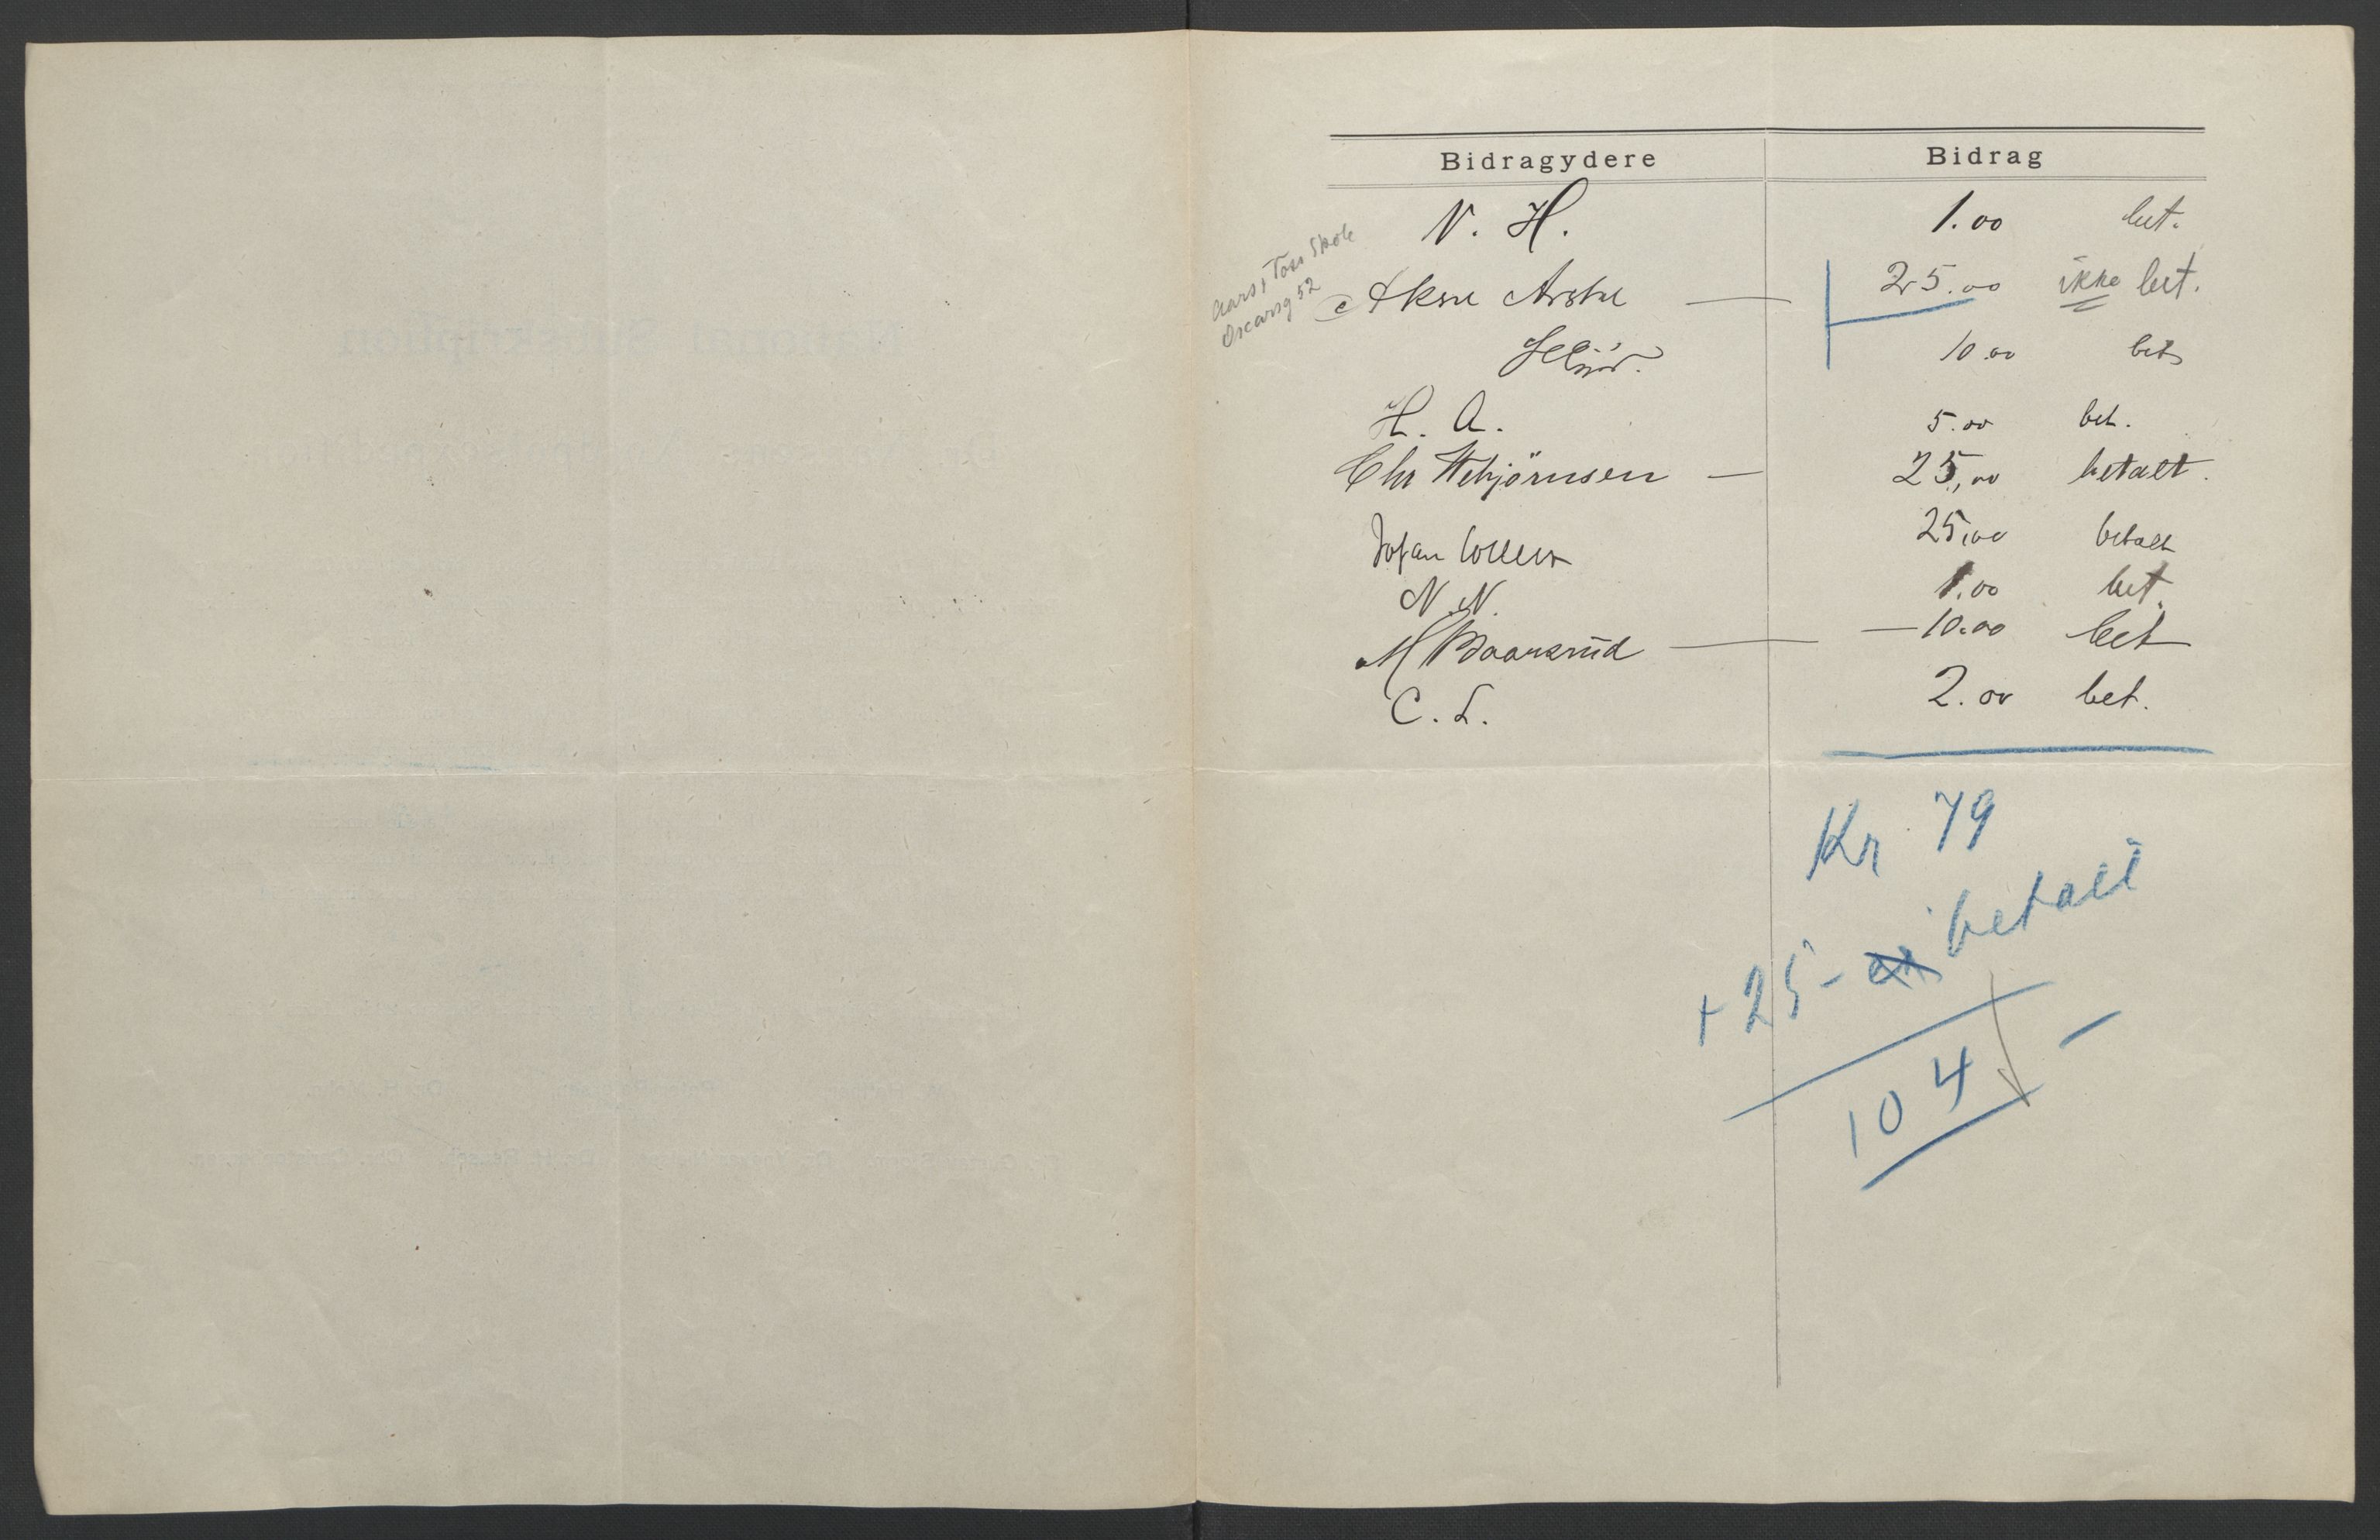 Bidragydere Bidrag
N. H. 1.00 bet.
Aars & Voss Skole
Oscarsg 52
Aksel Arstal — 25.00 ikke bet.
10.00 bet
H. A. 5.00 bet.
Chr Asbjörnsen — 25,00 betalt.
Johan 25,00 betalt
N. N. 1.00 bet.
M Baarsrud — — 10.00 bet
C. L. 2.00 bet.
Kr 79
+ 25 - betalt
104 —